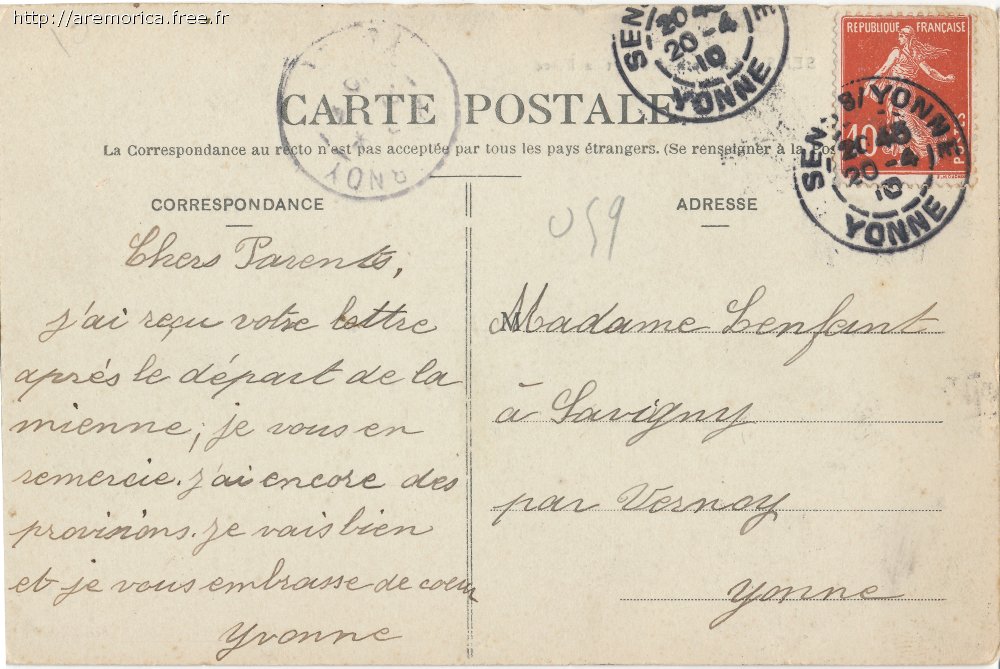 http://aremorica.free.fr
RÉPUBLIQUE FRANÇAISE
10
POSTES
SENS S/ YONNE
20 -4
10
YONNE
SENS
20 -4
10
YONNE
CARTE POSTALE
La Correspondance au recto n'est pas acceptée par tous les pays étrangers. (Se renseigner à la Poste
CORRESPONDANCE
ADRESSE
059
Chers Parents,
j'ai reçu votre lettre
aprés le départ de la
mienne, je vous en
remercie. j'ai encore des
provisions. je vais bien
et je vous embrasse de coeur
Yvonne
M
Madame Lenfant
à Savigny
par Vernoy
Yonne